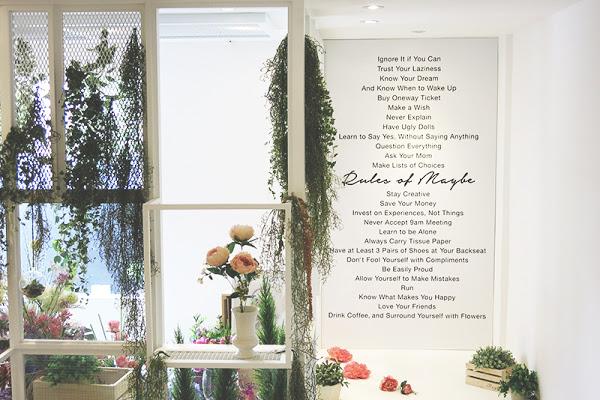 Ignore It if You Can
Trust Your Laziness
Know Your Dream
And Know When to Wake Up
Buy Oneway Ticket
Make a Wish
Never Explain
Have Ugly Dolls
Learn to Say Yes, Without Saying Anything
Question Everything
Ask Your Mom
Make Lists of Choices
Rules of Maybe
Stay Creative
Save Your Money
Invest on Experiences, Not Things
Never Accept 9am Meeting
Learn to be Alone
Always Carry Tissue Paper
Have at Least 3 Pairs of Shoes at Your Backseat
Don't Fool Yourself with Compliments
Be Easily Proud
Allow Yourself to Make Mistakes
Run
Know What Makes You Happy
Love Your Friends
Drink Coffee, and Surround Yourself with Flowers